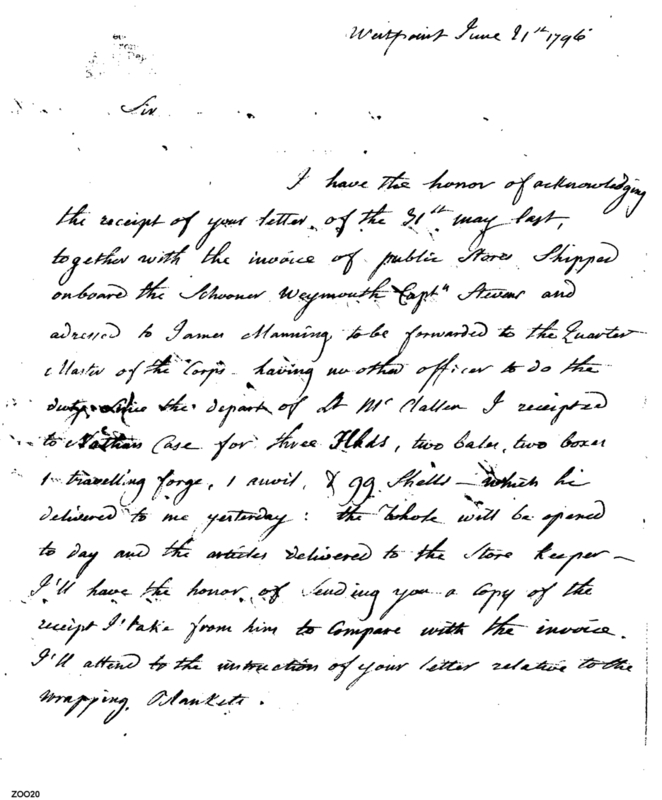 Westpoint June 21st 1796
Sir
I have the honor of acknowledging
the receipt of your letter of the 31st may last,
together with the invoice of public Stores Shipped
onboard the Schooner Weymouth Captn Stevens and
adressed to James Manning to be forwarded to the Quarter
Master of the Corps having no other officer to do the
duty Since the depart of Lt McClallen I receipted
to Nathan Case for three Hhds, two bales, two boxes
1 travelling forge, 1 anvil, & 99 Shells — which he
delivered to me yesterday: the whole will be opened
to day and the articles delivered to the Store Keeper —
I'll have the honor of Sending you a Copy of the
receipt I take from him to Compare with the invoice.
I'll attend to the instruction of your letter relative to the
wrapping Blankets.
ZOO20